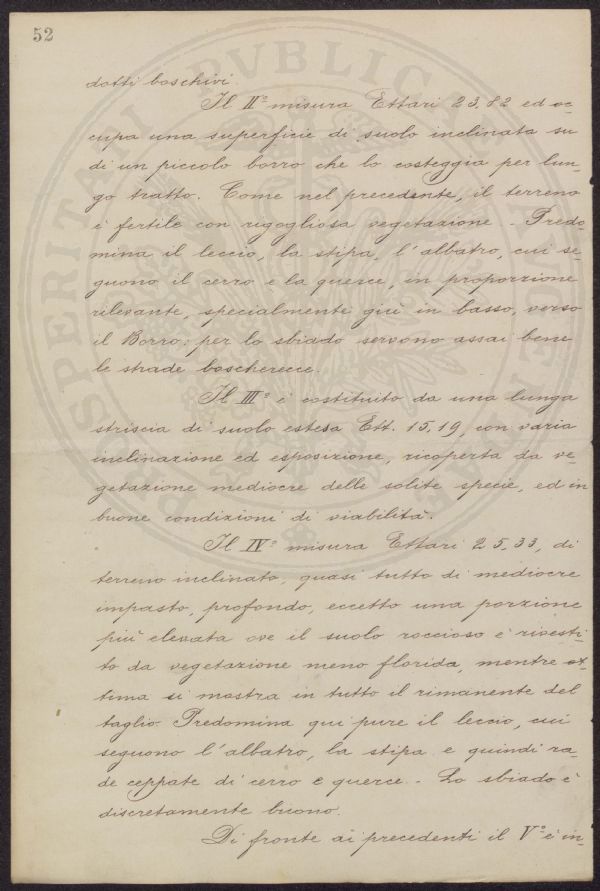 52
dotti boschivi.
Il II.º misura Ettari 23,82 ed oc-
cupa una superficie di suolo inclinata su
di un piccolo borro che lo costeggia per lun-
go tratto. Come nel precedente, il terreno
è fertile con rigogliosa vegetazione. Predo-
mina il leccio, la stipa, l'albatro, cui se-
guono il cerro e la querce, in proporzione
rilevante, specialmente giù in basso, verso
il Borro: per lo sbiado servono assai bene
le strade boscherecce.
Il III.º è costituito da una lunga
striscia di suolo estesa Ett. 15,19, con varia
inclinazione ed esposizione, ricoperta da ve-
getazione mediocre delle solite specie, ed in
buone condizioni di viabilità.
Il IV.º misura Ettari 25,33, di
terreno inclinato, quasi tutto di mediocre
impasto, profondo, eccetto una porzione
più elevata ove il suolo roccioso è rivesti-
to da vegetazione meno florida, mentre ot-
tima si mostra in tutto il rimanente del
taglio. Predomina qui pure il leccio, cui
seguono l'albatro, la stipa e quindi ra-
de ceppate di cerro e querce. Lo sbiado è
discretamente buono.
Di fronte ai precedenti il V.º è in-